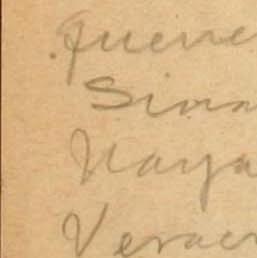 Quere
Sina
Naya
Verac